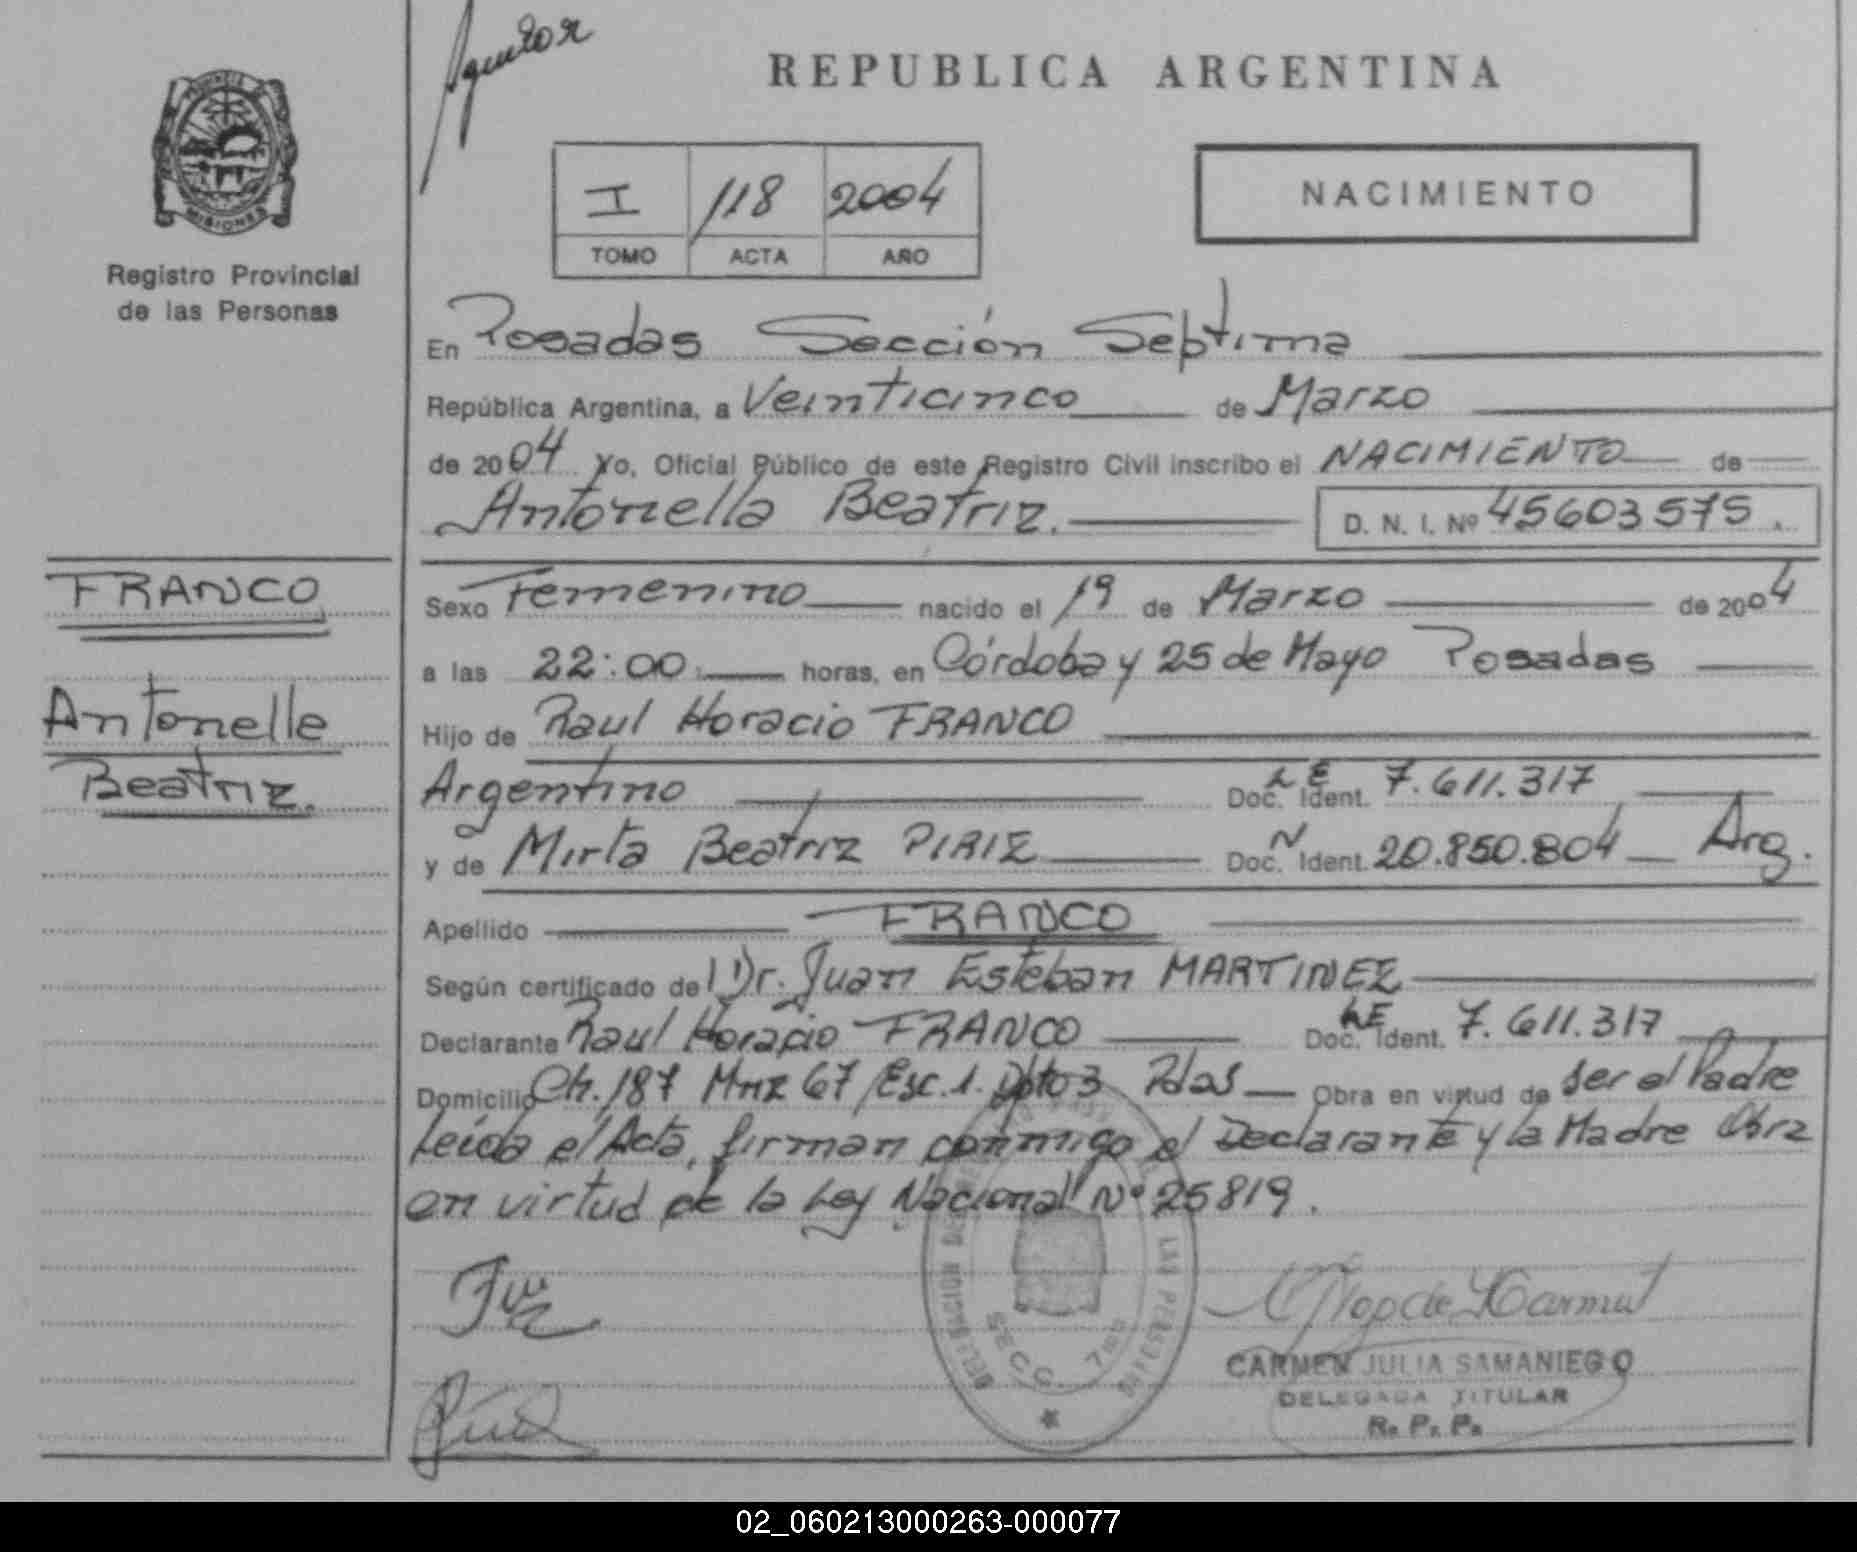 Aguilar
REPUBLICA ARGENTINA
MISIONES
Registro Provincial
de las Personas
I 118 2004
TOMO ACTA AÑO
NACIMIENTO
En Posadas Sección Septima
República Argentina, a Veinticinco de Marzo
de 2004 Yo, Oficial Público de este Registro Civil inscribo el NACIMIENTO de
Antonella Beatriz. D. N. I. Nº 45603575
FRANCO
Antonella
Beatriz.
Sexo Femenino nacido el 19 de Marzo de 2004
a las 22:00 horas, en Córdoba y 25 de Mayo Posadas
Hijo de Raul Horacio FRANCO
Argentino Doc. Ident. LE 7.611.317
y de Mirta Beatriz PIRIZ Doc. Ident. N 20.850.804 Arg.
Apellido FRANCO
Según certificado de Dr. Juan Esteban MARTINEZ
Declarante Raul Horacio FRANCO Doc. Ident. LE 7.611.317
Domicilio Ch. 187 Mnz 67 Esc. 1. Dpto 3 Pdas Obra en virtud de ser el Padre
Leída el Acta, firman conmigo el Declarante y la Madre Obra
en virtud de la Ley Nacional Nº 25819.
SECC. 7ma
CARMEN JULIA SAMANIEGO
DELEGADA TITULAR
R. P. P.
02_060213000263-000077